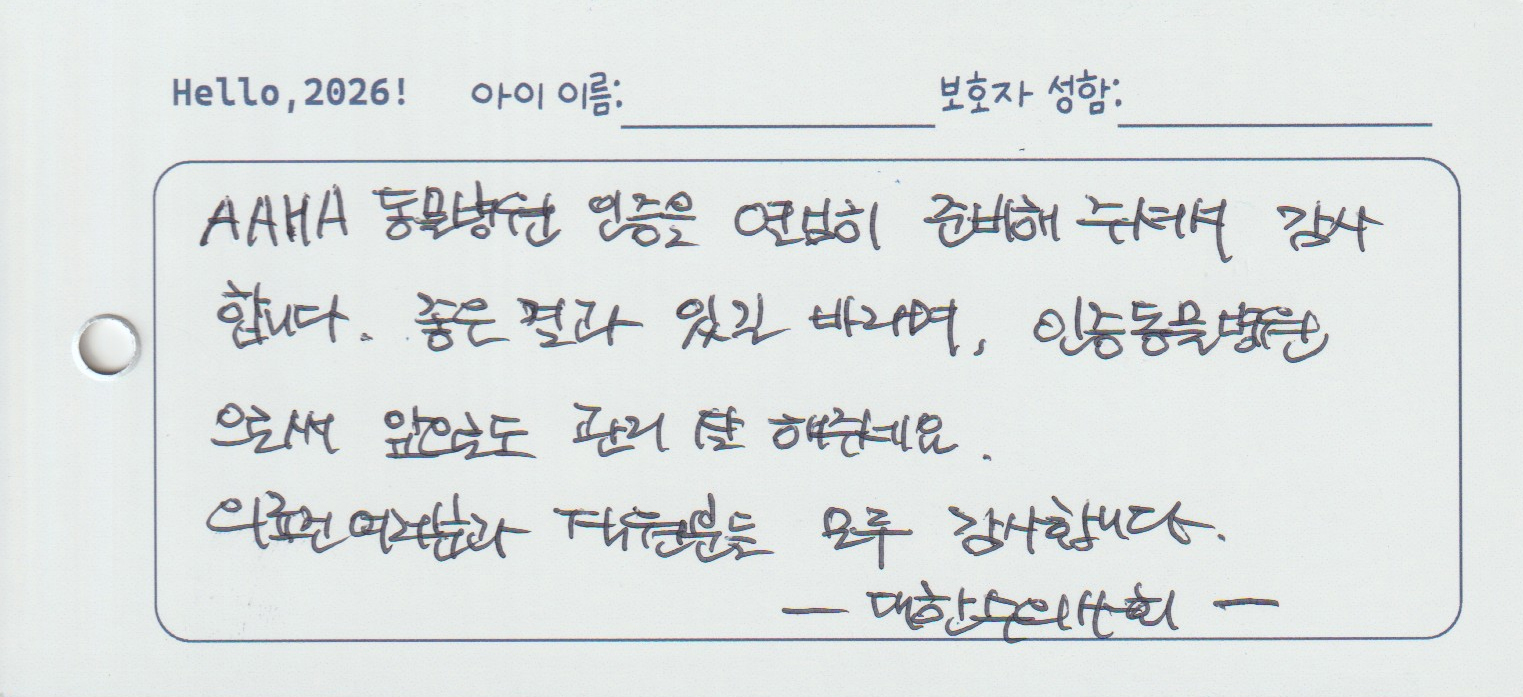 Hello,2026! 아이 이름: 보호자 성함:
AAHA 동물병원 인증을 열심히 준비해 주셔서 감사
합니다. 좋은 결과 있길 바라며, 인증동물병원
으로써 앞으로도 관리 잘 해주세요.
의료진 여러분과 직원분들 모두 감사합니다.
— 대한수의사회 —